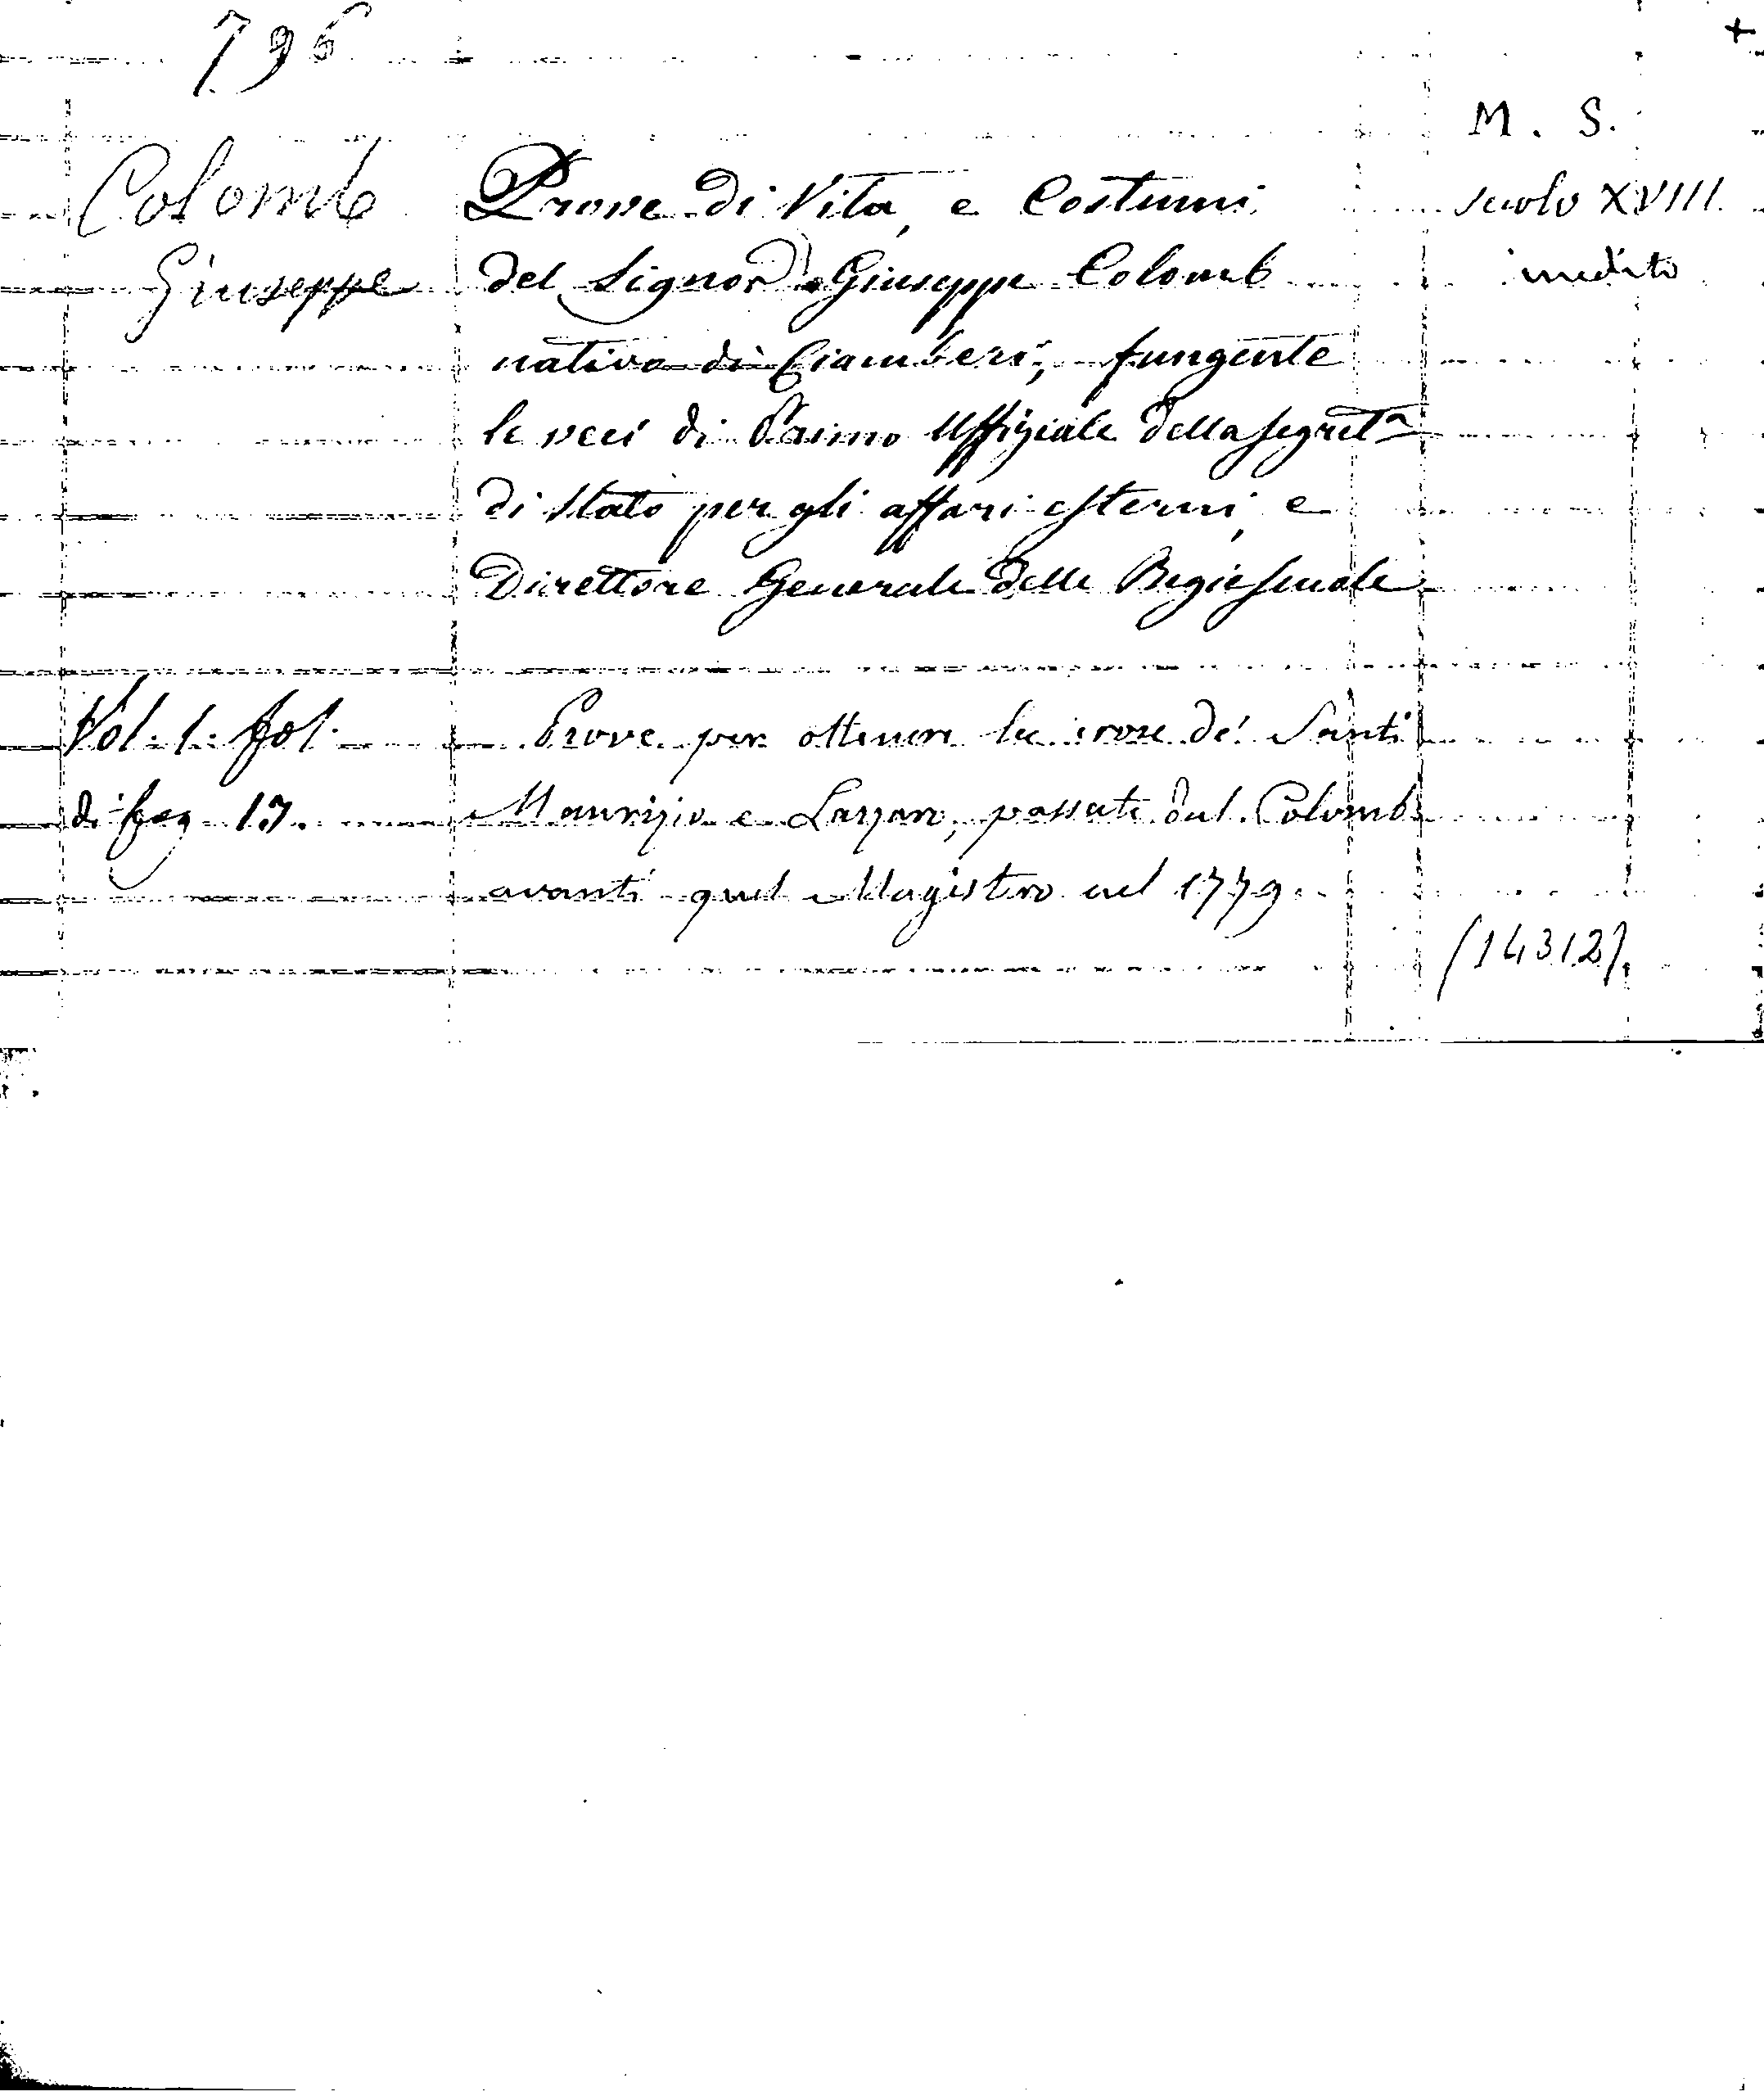 796
+
M. S.
Colomb
Prove di Vita, e Costumi
secolo XVIII.
Giuseppe
del Signor Giuseppe Colomb
inedito
nativo di Ciamberì, fungente
le veci di Primo Uffiziale della segret.a
di Stato per gli affari esterni, e
Direttore Generale delle Regie Scuole
Vol. 1. fol.
Prove per ottenere la croce de' Santi
di pag. 17.
Maurizio e Lazzaro, passate dal Colomb
avanti quel Magistero nel 1779.
(14312).